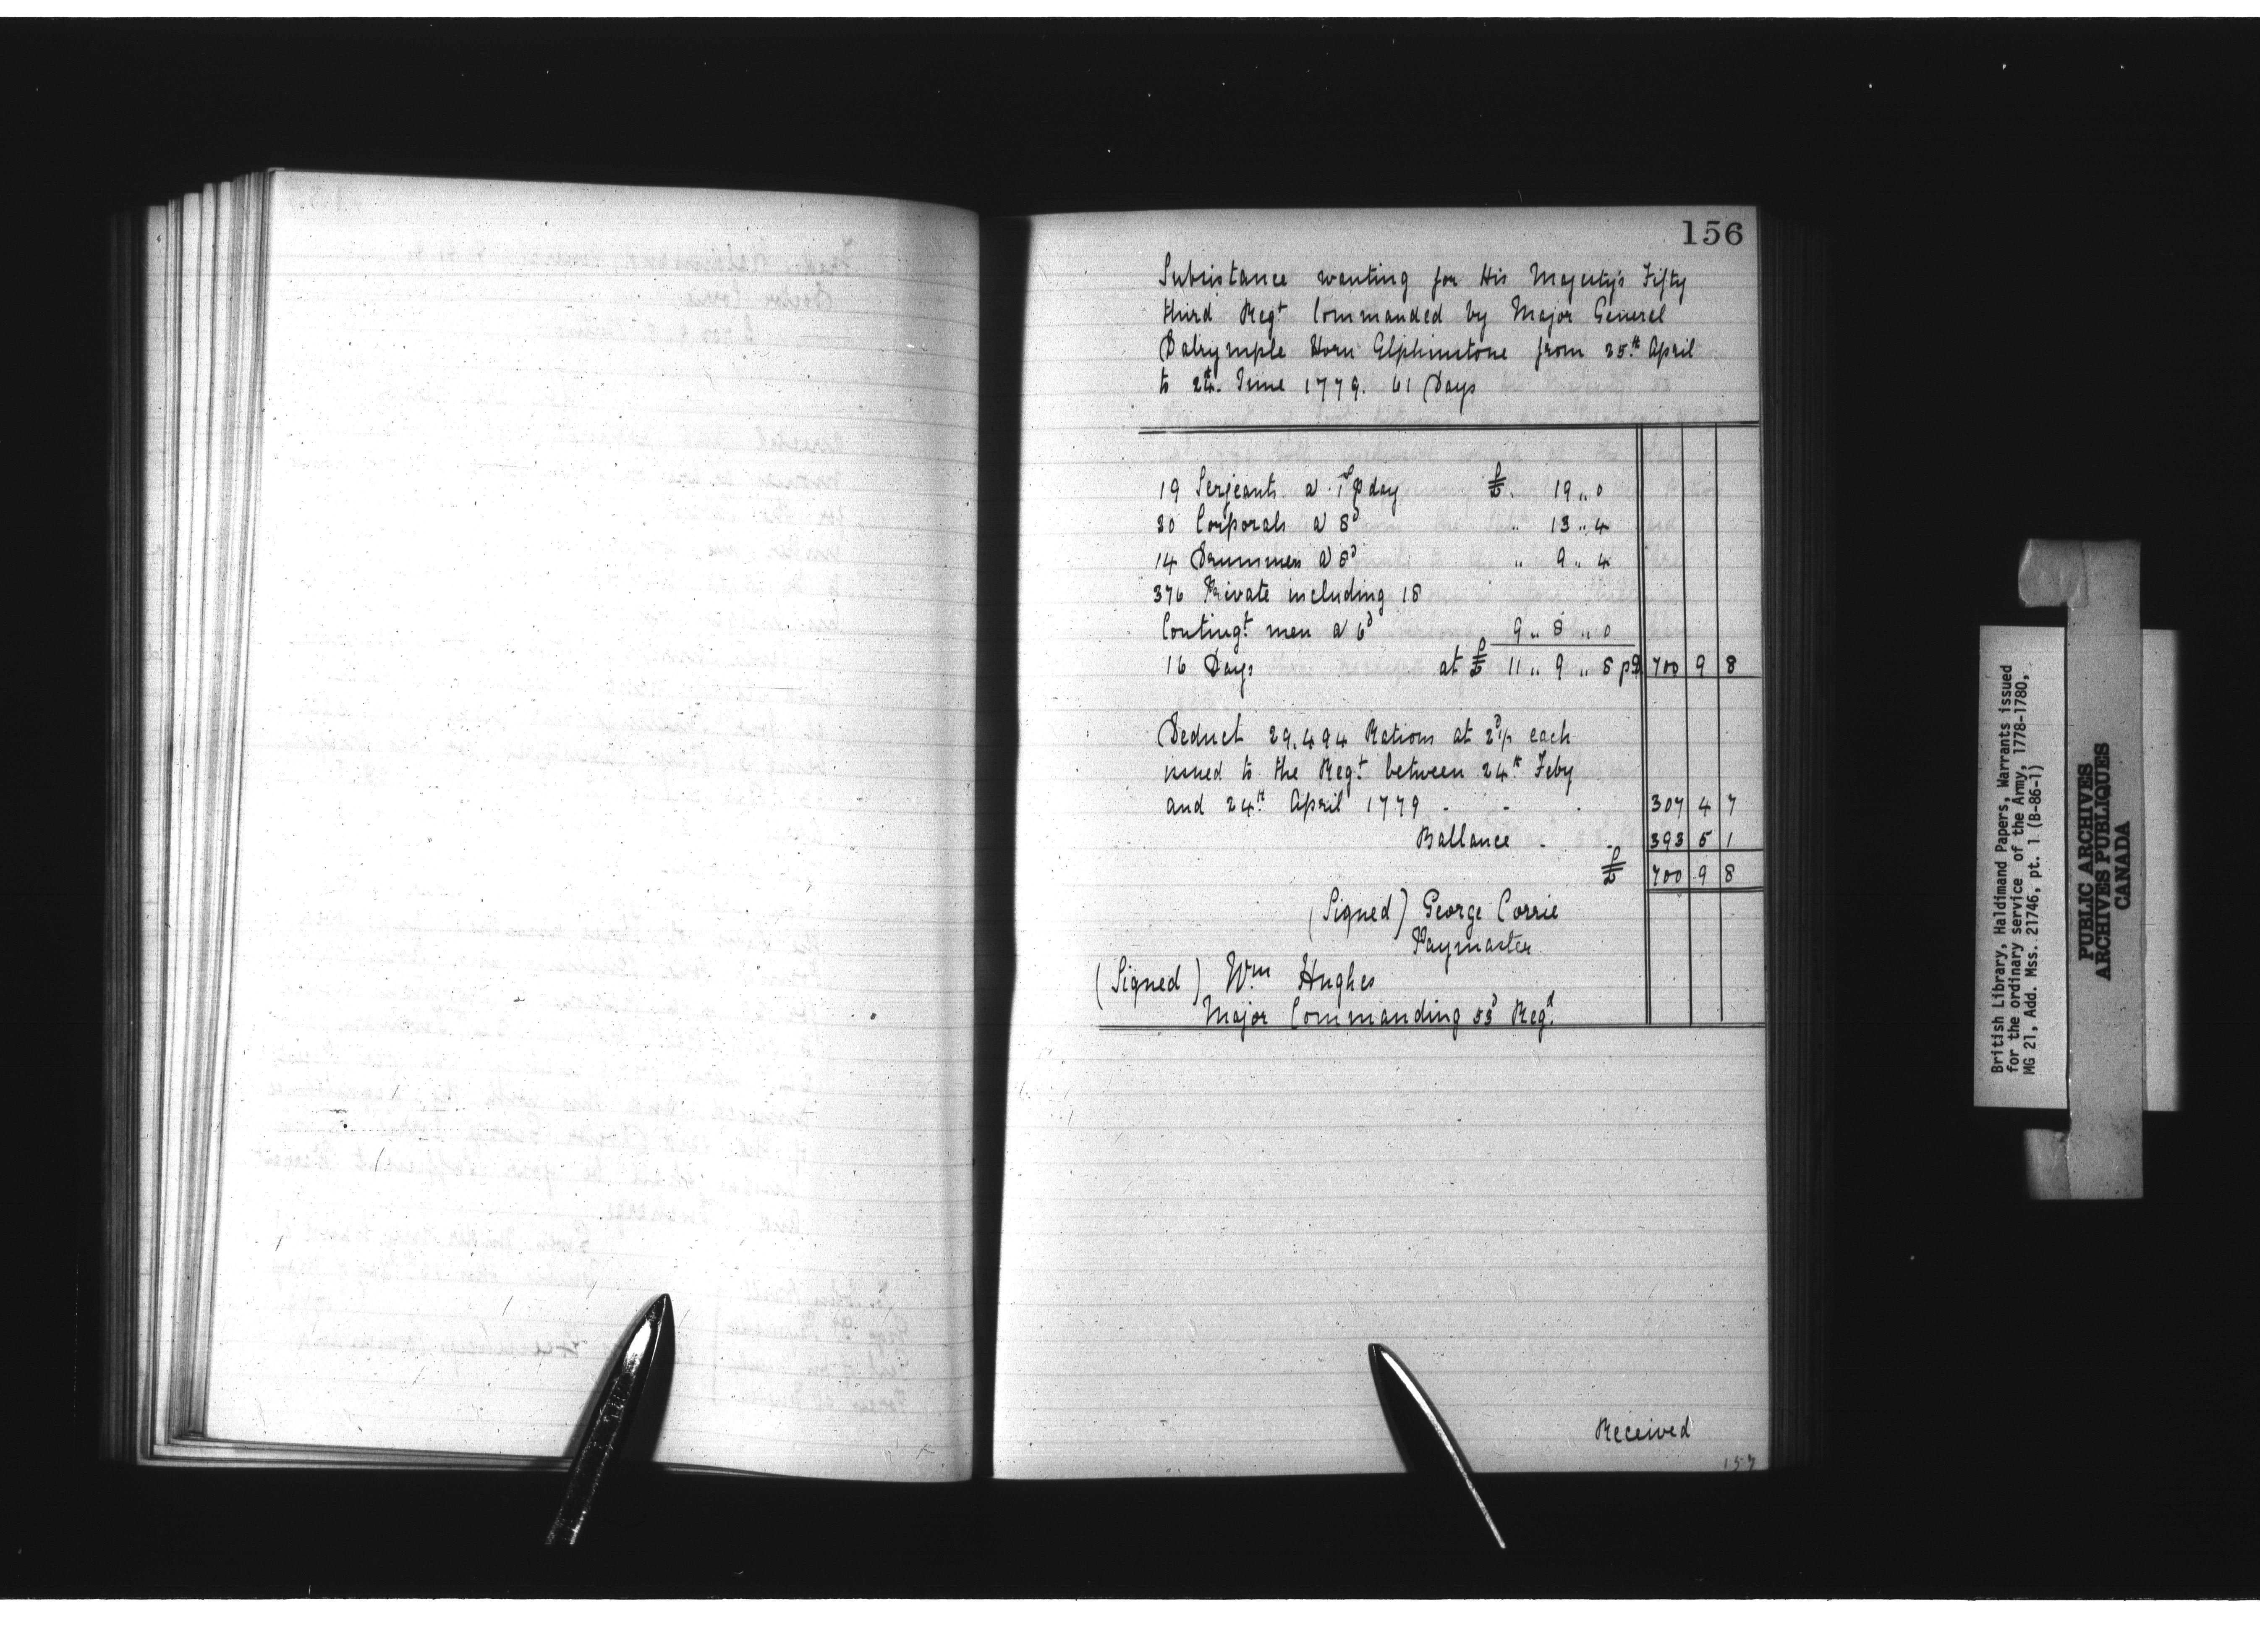 156
Subsistance wanting for His Majesty's Fifty
third Regt Commanded by Major General
Dalrymple Horn Elphinstone from 25th April
to 24th June 1779. 61 Days
19 Serjeants a 1s p day £. 19 „ 0
20 Corporals a 8d „ 13 „ 4
14 Drummers a 8d „ 9 „ 4
376 Private including 18
Contingt men a 6d 9 „ 8 „ 0
16 Days at £ 11 „ 9 „ 8 pD 700 9 8
Deduct 29,494 Rations at 2d½ each
issued to the Regt between 24th Feby
and 24th April 1779 - - - 307 4 7
Ballance - - 393 5 1
£ 700 9 8
(Signed) George Corrie
Paymaster
(Signed) Wm Hughes
Major Commanding 53d Regt
Received
157
British Library, Haldimand Papers, Warrants issued
for the ordinary service of the Army, 1778-1780,
MG 21, Add. Mss. 21746, pt. 1 (B-86-1)
PUBLIC ARCHIVES
ARCHIVES PUBLIQUES
CANADA